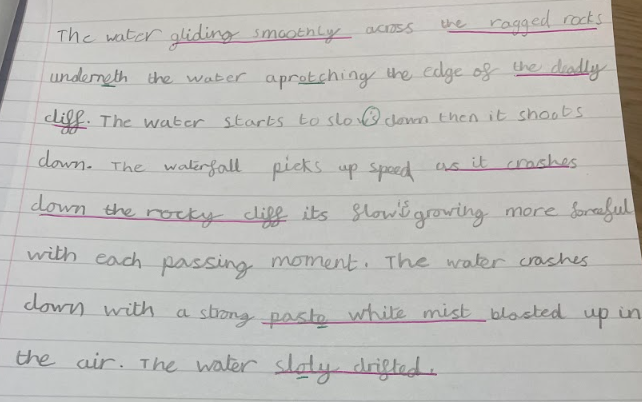 The water gliding smoothly across the ragged rocks
underneth the water aprotching the edge of the deadly
cliff. The water starts to slow down then it shoots
down. The waterfall picks up speed as it crashes
down the rocky cliff its flow's growing more forceful
with each passing moment. The water crashes
down with a strong paste white mist blasted up in
the air. The water sloly drifted.